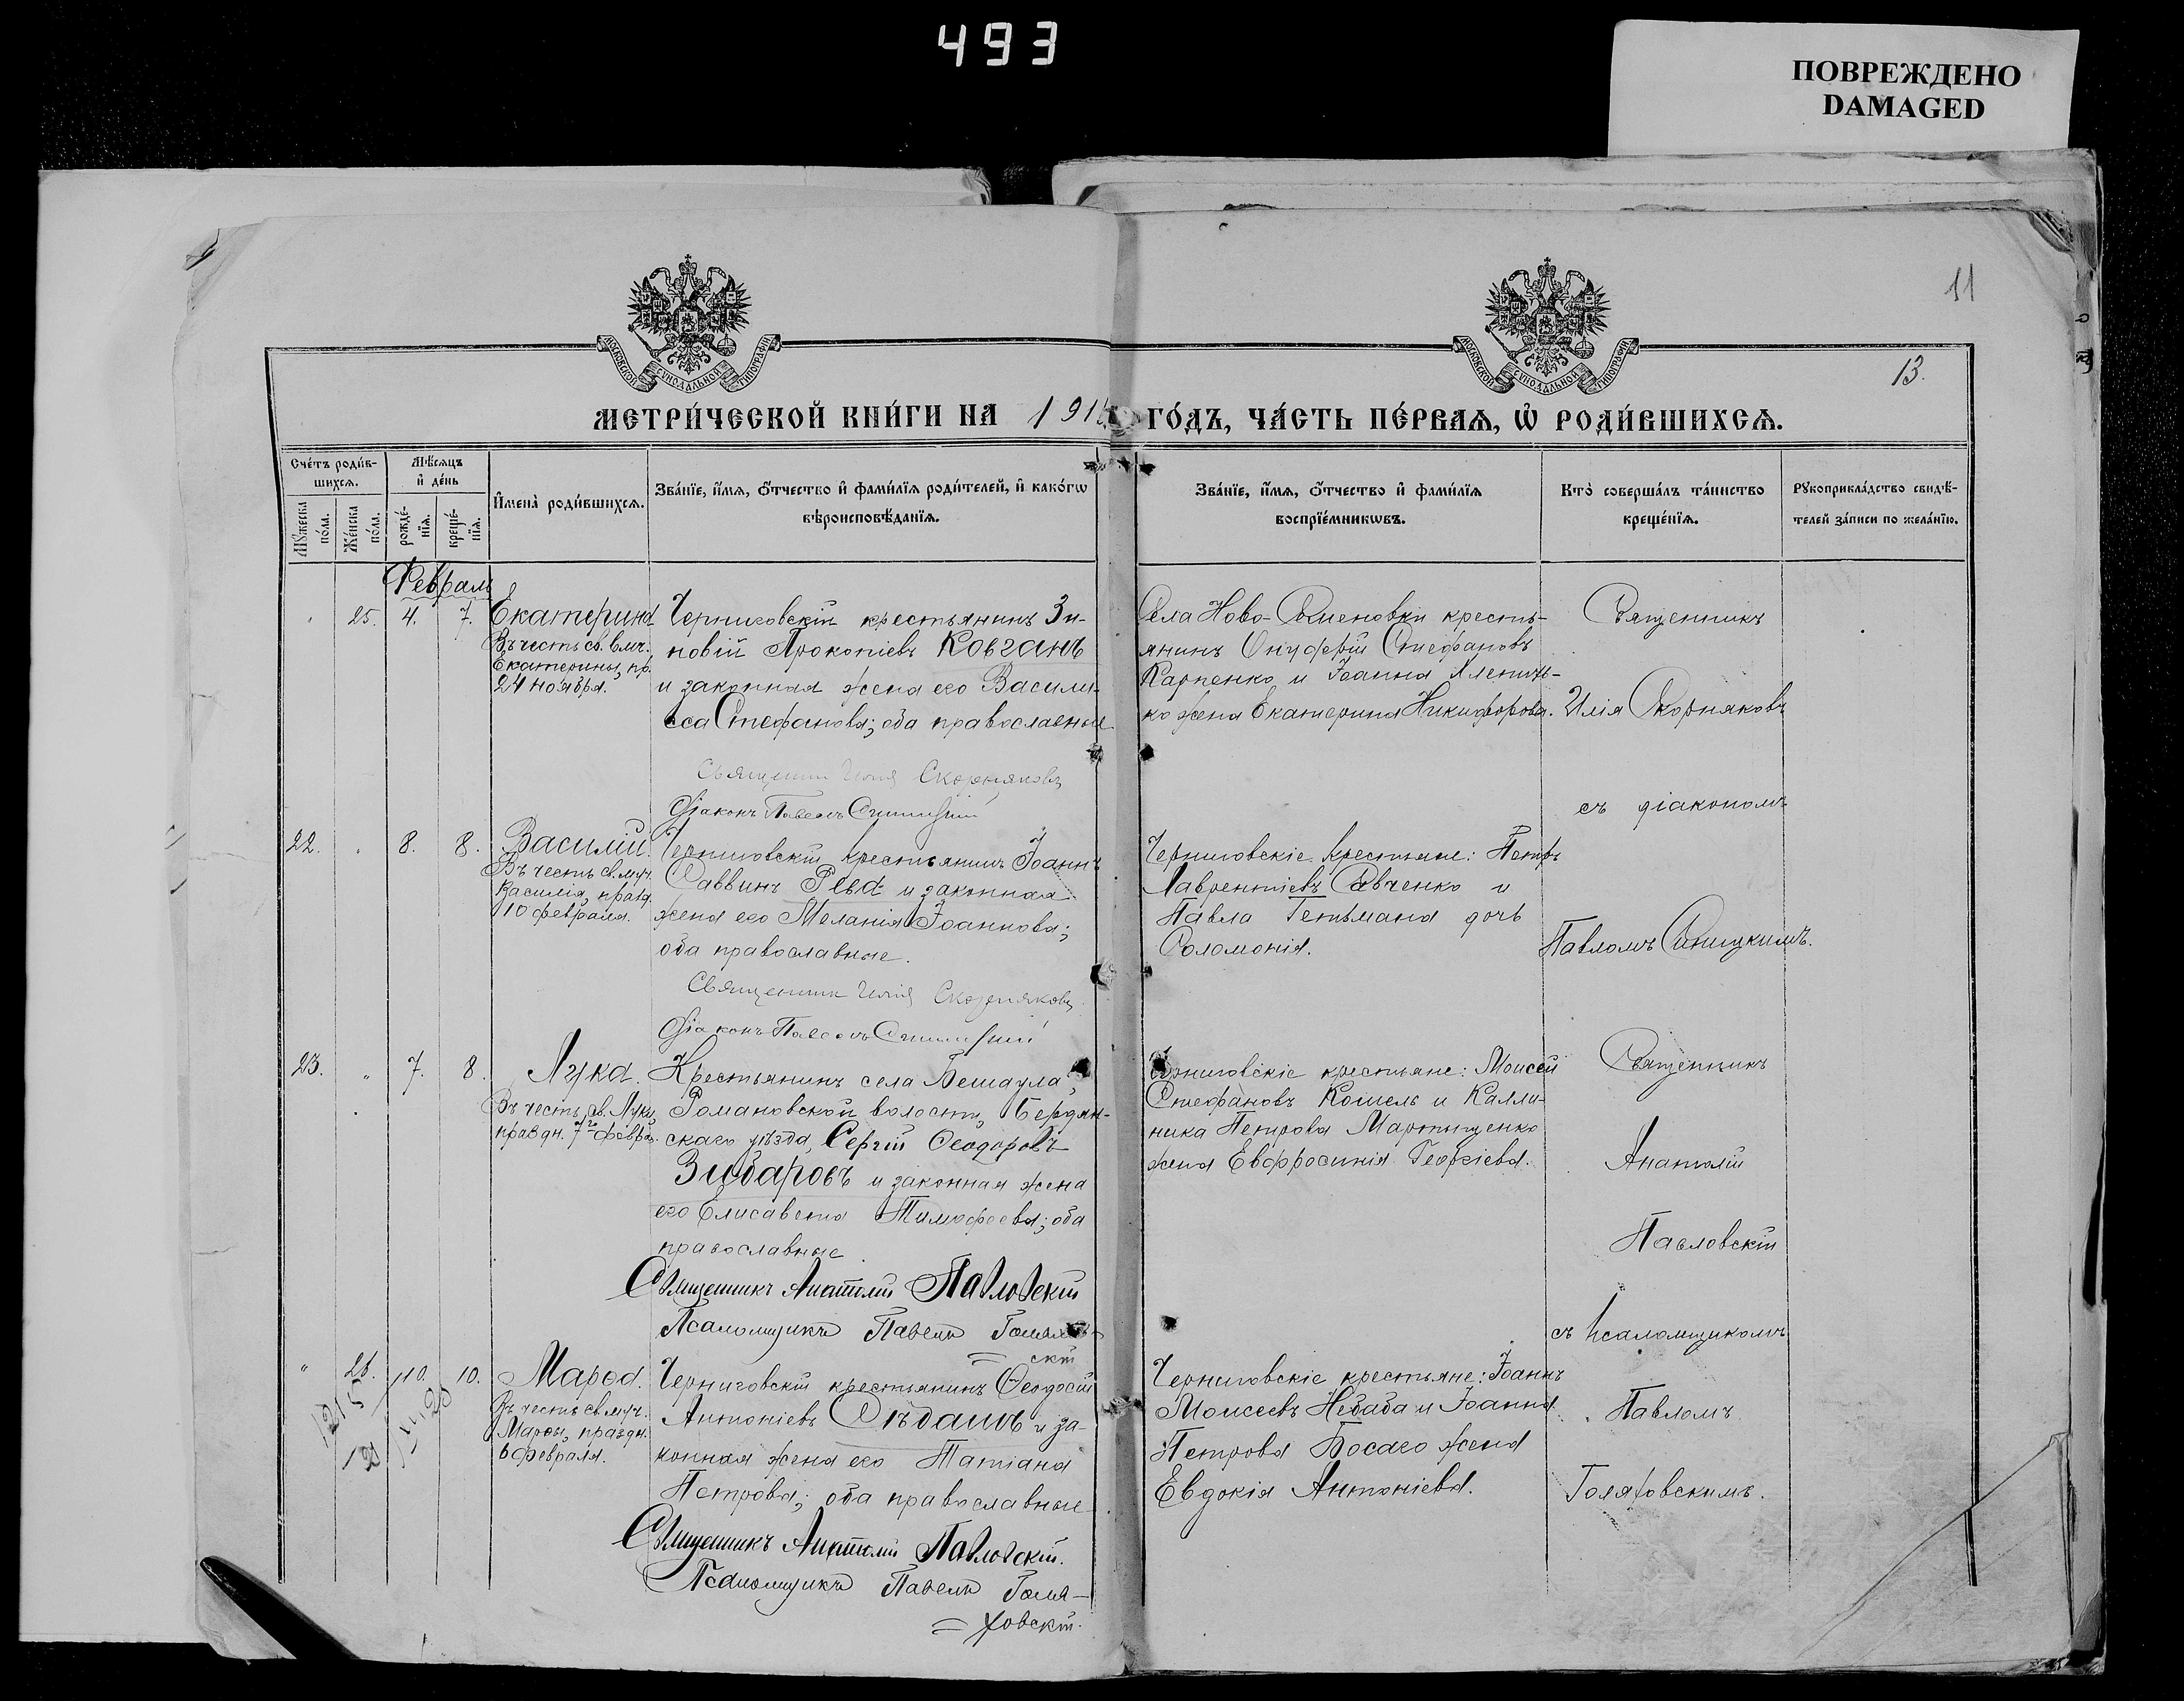 493
ПОВРЕЖДЕНО
DAMAGED
11
13.
МОСКОВСКОЙ СѴНОДАЛЬНОЙ ТИПОГРАФІИ
МОСКОВСКОЙ СѴНОДАЛЬНОЙ ТИПОГРАФІИ
МЕТРИ́ЧЕСКОЙ КНИ́ГИ НА 191 ГО́ДЪ, ЧА́СТЬ ПЕ́РВАѦ, Ѡ҆ РОДИ́ВШИХСѦ.
Сче́тъ роди́в-
шихсѧ.
Мѣ́сѧцъ
и҆ де́нь
Мꙋ́жеска
по́ла.
Же́нска
по́ла.
рожде́-
нїѧ.
креще́-
нїѧ.
И҆мена̀ роди́вшихсѧ.
Зва́нїе, и҆́мѧ, ѻ҆́тчество и҆ фами́лїѧ роди́телей, и҆ како́гѡ
вѣроисповѣ́данїѧ.
Зва́нїе, и҆́мѧ, ѻ҆́тчество и҆ фами́лїѧ
воспрїе́мникѡвъ.
Кто̀ соверша́лъ та́инство
креще́нїѧ.
Рꙋкоприкла́дство свидѣ́-
телей за́писи по жела́нїю.
Февраль
" 25. 4. 7. Екатерина
Въ честь св. влмч.
Екатерины, пр.
24 ноября.
Черниговскій крестьянинъ Зи-
новій Прокопіевъ Ковганъ
и законная жена его Васили-
сса Стефанова; оба православные
Священникъ Илія Скорняковъ
Діаконъ Павелъ Синицкій
Села Ново- крестья-
янинъ Онуфрій Стефановъ
Карпенко и Іоанна
жена Екатерина Никифорова.
Священникъ
Илія Скорняковъ
съ діакономъ
Павломъ Синицкимъ.
22. " 8. 8. Василій.
Въ честь св. муч.
Василія, празд.
10 февраля.
Черниговскій крестьянинъ Іоаннъ
Саввинъ Рева и законная
жена его Меланія Іоаннова;
оба православные.
Священникъ Илія Скорняковъ
Діаконъ Павелъ Синицкій
Черниговскіе крестьяне: Петръ
Лаврентіевъ Савченко и
Павла Гетьмана дочь
Соломонія.
23. " 7. 8. Лука.
Въ честь св. Луки,
праздн. 7го февра.
Крестьянинъ села Бешаула,
Романовской волости, Бердян-
скаго уѣзда, Сергій Ѳеодоровъ
Зибаровъ и законная жена
его Елисавета Тимофеева; оба
православные.
Священникъ Анатолій Павловскій
Псаломщикъ Павелъ
скій
Черниговскіе крестьяне: Моисей
Стефановъ Кошель и Калли-
ника Петрова Мартыщенко
жена Евфросинія Георгіева.
Священникъ
Анатолій
Павловскій
съ псаломщикомъ
Павломъ
" 26. 10. 10. Марѳа.
Въ честь св. муч.
Марѳы, праздн.
6 февраля.
Черниговскій крестьянинъ Ѳеодосій
Антоніевъ и за-
конная жена его Татіана
Петрова; оба православные.
Священникъ Анатолій Павловскій.
Псаломщикъ Павелъ Голя-
ховскій.
Черниговскіе крестьяне: Іоаннъ
Моисеевъ Небаба и Іоанна
Петрова Босаго жена
Евдокія Антоніева.
Голяховскимъ.